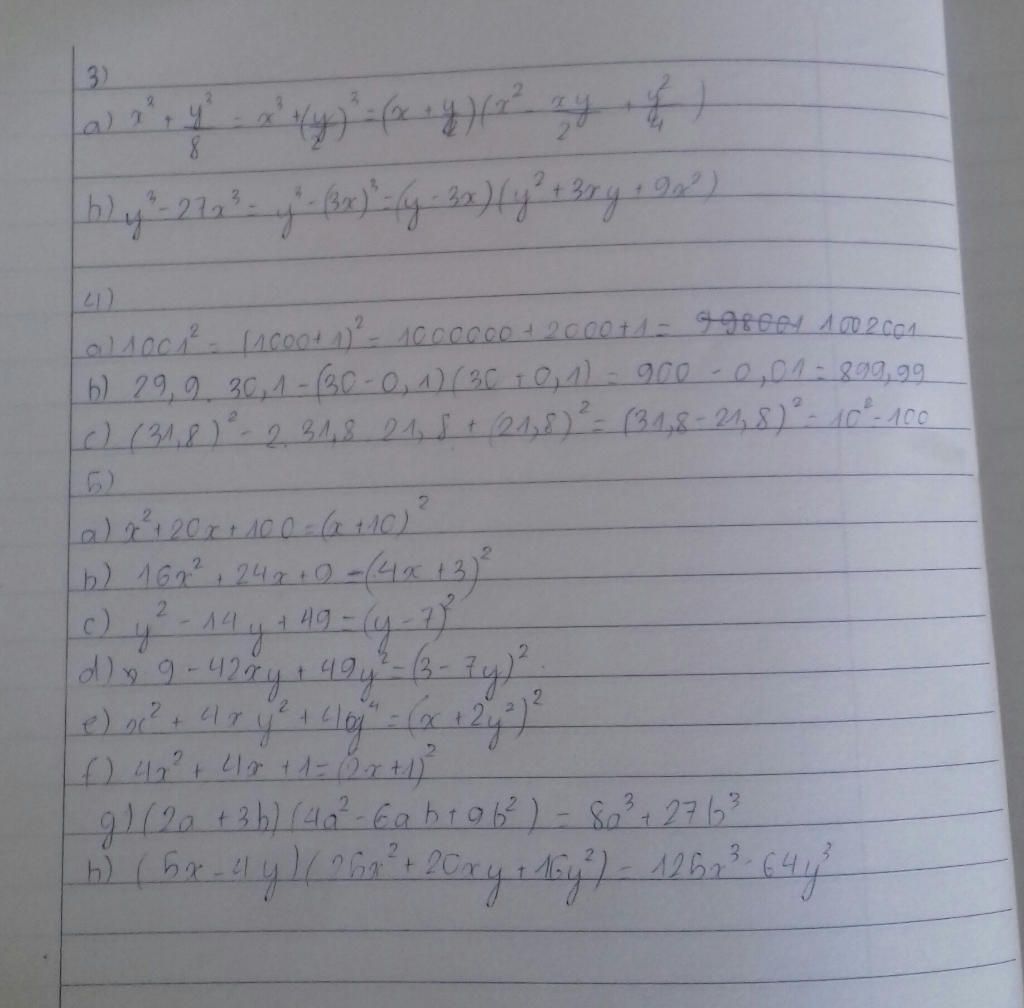 3)
a) x³ + y³/8 = x³ + (y/2)³ = (x + y/2)(x² - xy/2 + y²/4)
b) y³ - 27x³ = y³ - (3x)³ = (y - 3x)(y² + 3xy + 9x²)
4)
a) 1001² = (1000+1)² = 1000000 + 2000 + 1 = 998001 1002001
b) 29,9 . 30,1 = (30 - 0,1)(30 + 0,1) = 900 - 0,01 = 899,99
c) (31,8)² - 2. 31,8 21,8 + (21,8)² = (31,8 - 21,8)² = 10² = 100
5)
a) x² + 20x + 100 = (x + 10)²
b) 16x² + 24x + 9 = (4x + 3)²
c) y² - 14y + 49 = (y - 7)²
d) 9 - 42xy + 49y² = (3 - 7y)²
e) x² + 4xy² + 4y⁴ = (x + 2y²)²
f) 4x² + 4x + 1 = (2x + 1)²
g) (2a + 3b)(4a² - 6ab + 9b²) = 8a³ + 27b³
h) (5x - 4y)(25x² + 20xy + 16y²) = 125x³ - 64y³